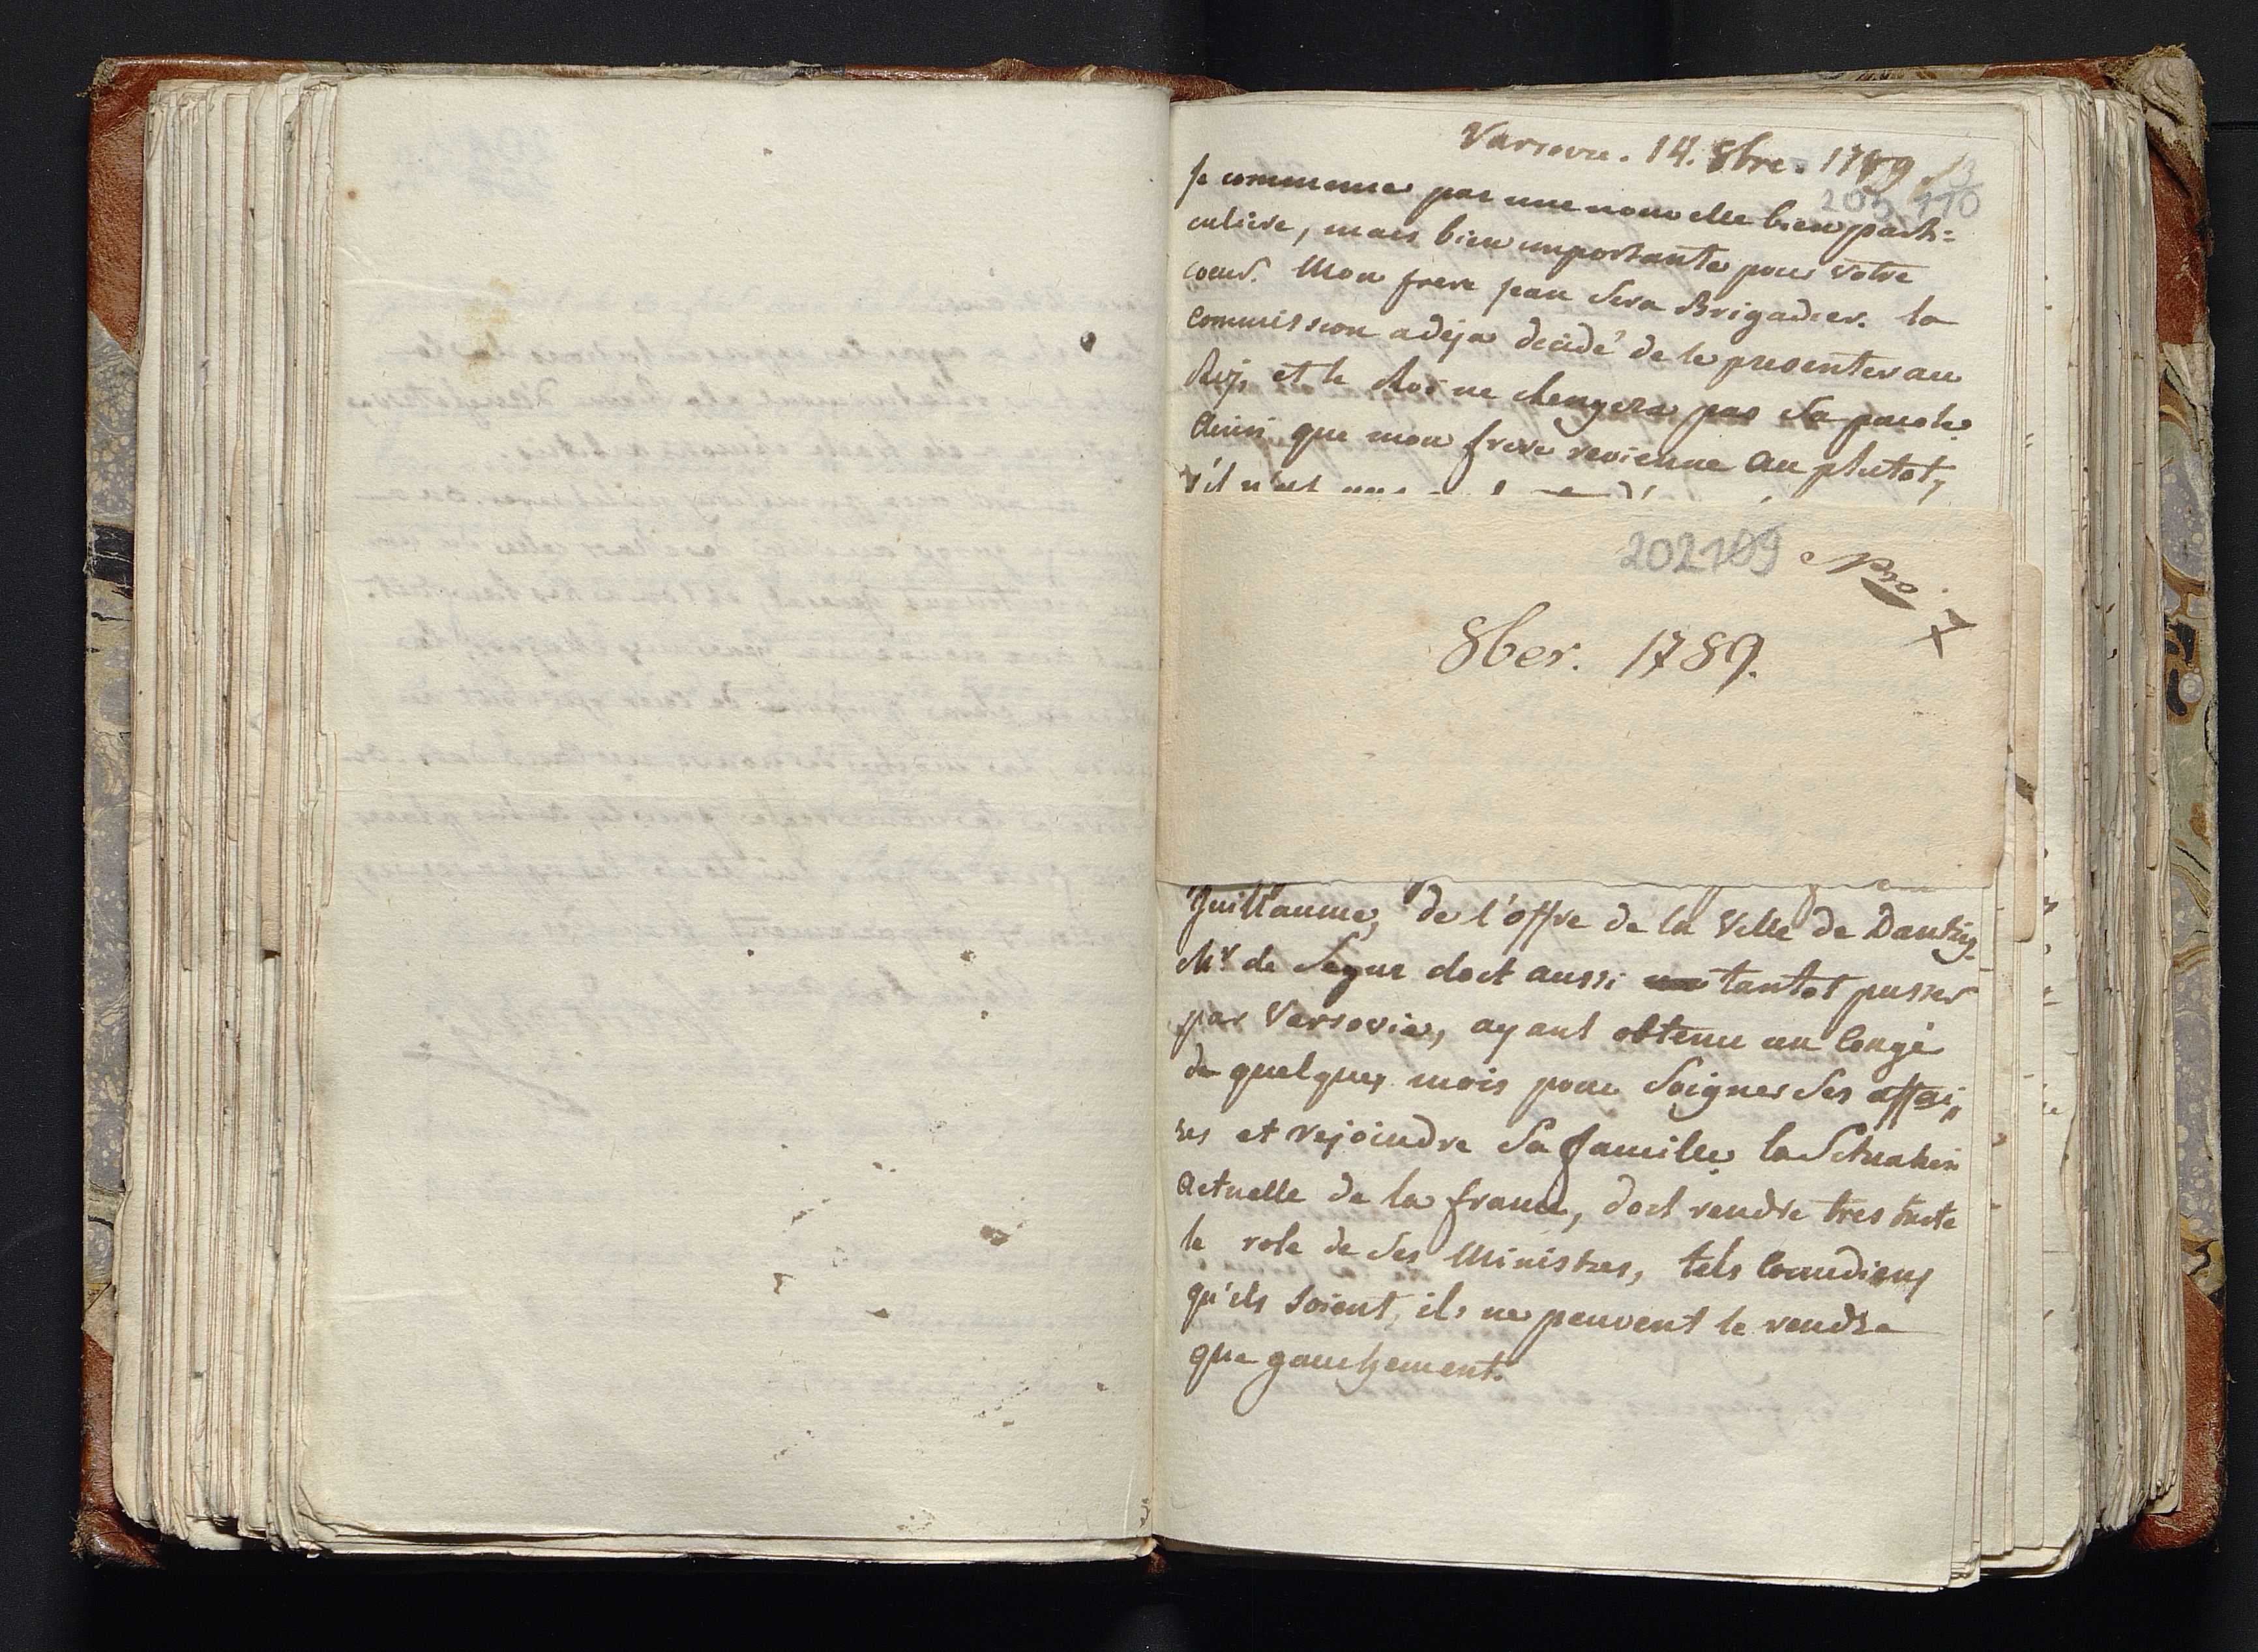 Varsovie. 14. 8bre. 1789
203 110
Je commence par une nouvelle bien parti=
culiere, mais bien importante pour votre
coeur. Mon frere jean sera Brigadier. la
commission a deja decidé de le presenter au
Roy, et le Roi ne changera pas sa parole
Ainsi que mon frere revienne au plutot,
s'il n'est
202 109 Nro 7
8ber. 1789.
Guillaume, de l'offre de la Ville de Dantzig.
Mr de Segur doit aussi tantot passer
par Varsovie, ayant obtenu un Congé
de quelques mois pour Soigner Ses affai,,
res et rejoindre Sa famille. la Situation
Actuelle de la france, doit rendre tres triste
le role de Ses Ministres, tels Comediens
qu'ils soient, ils ne peuvent le rendre
que gauchement.